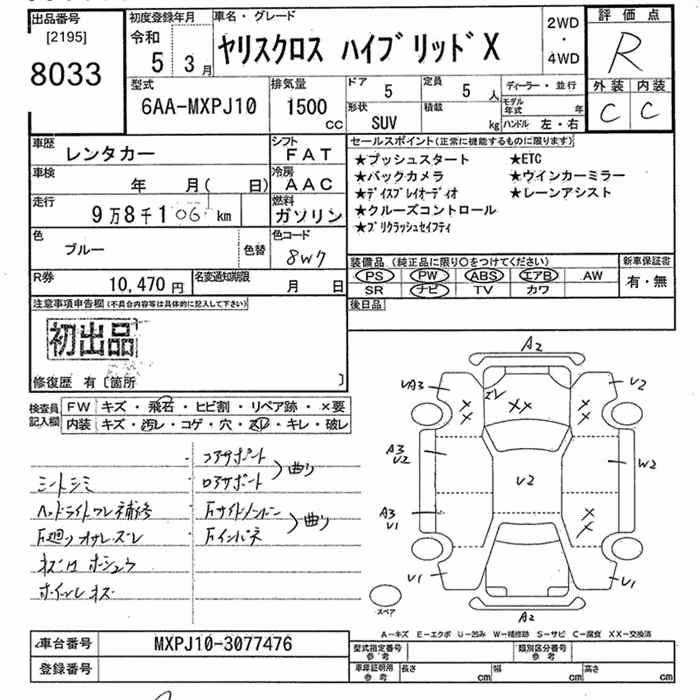 出品番号
[2195]
8033
初度登録年月
令和
5 3月
車名・グレード
ヤリスクロス ハイブリッドX
2WD
・
4WD
評価点
R
外装 内装
C C
型式
6AA-MXPJ10
排気量
1500
cc
ドア
5
定員
5 人
形状
SUV
積載
kg
ディーラー・並行
モデル年式 年
ハンドル 左・右
車歴
レンタカー
シフト
FAT
車検
年 月( 日)
冷房
AAC
走行
9万8千106 km
燃料
ガソリン
色
ブルー
色替
色コード
8W7
R券
10,470円
名変通知期限
月 日
セールスポイント(正常に機能するものに限ります)
★プッシュスタート ★ETC
★バックカメラ ★ウインカーミラー
★ディスプレイオーディオ ★レーンアシスト
★クルーズコントロール
★プリクラッシュセイフティ
装備品(純正品に限り○をつけてください)
PS PW ABS エアB AW
SR ナビ TV カワ
新車保証書
有・無
後日品
注意事項申告欄(不具合内容等は具体的に記入して下さい)
初出品
修復歴 有〔箇所 〕
検査員記入欄
FW キズ・飛石・ヒビ割・リペア跡・×要
内装 キズ・汚レ・コゲ・穴・スレ・キレ・破レ
コアサポート
シートシミ
ロアサポート
曲り
ヘッドライトワレ補修
曲り
ホイールキズ
A2
VA3
V2
XX
A3
V2
V2
W2
A3
V1
V1
V1
A2
スペア
A-キズ E-エクボ U-凹み W-補修跡 S-サビ C-腐食 XX-交換済
車台番号
MXPJ10-3077476
登録番号
型式指定番号
参考
類別区分番号
参考
車庫証明用
参考
長さ cm
幅 cm
高さ cm